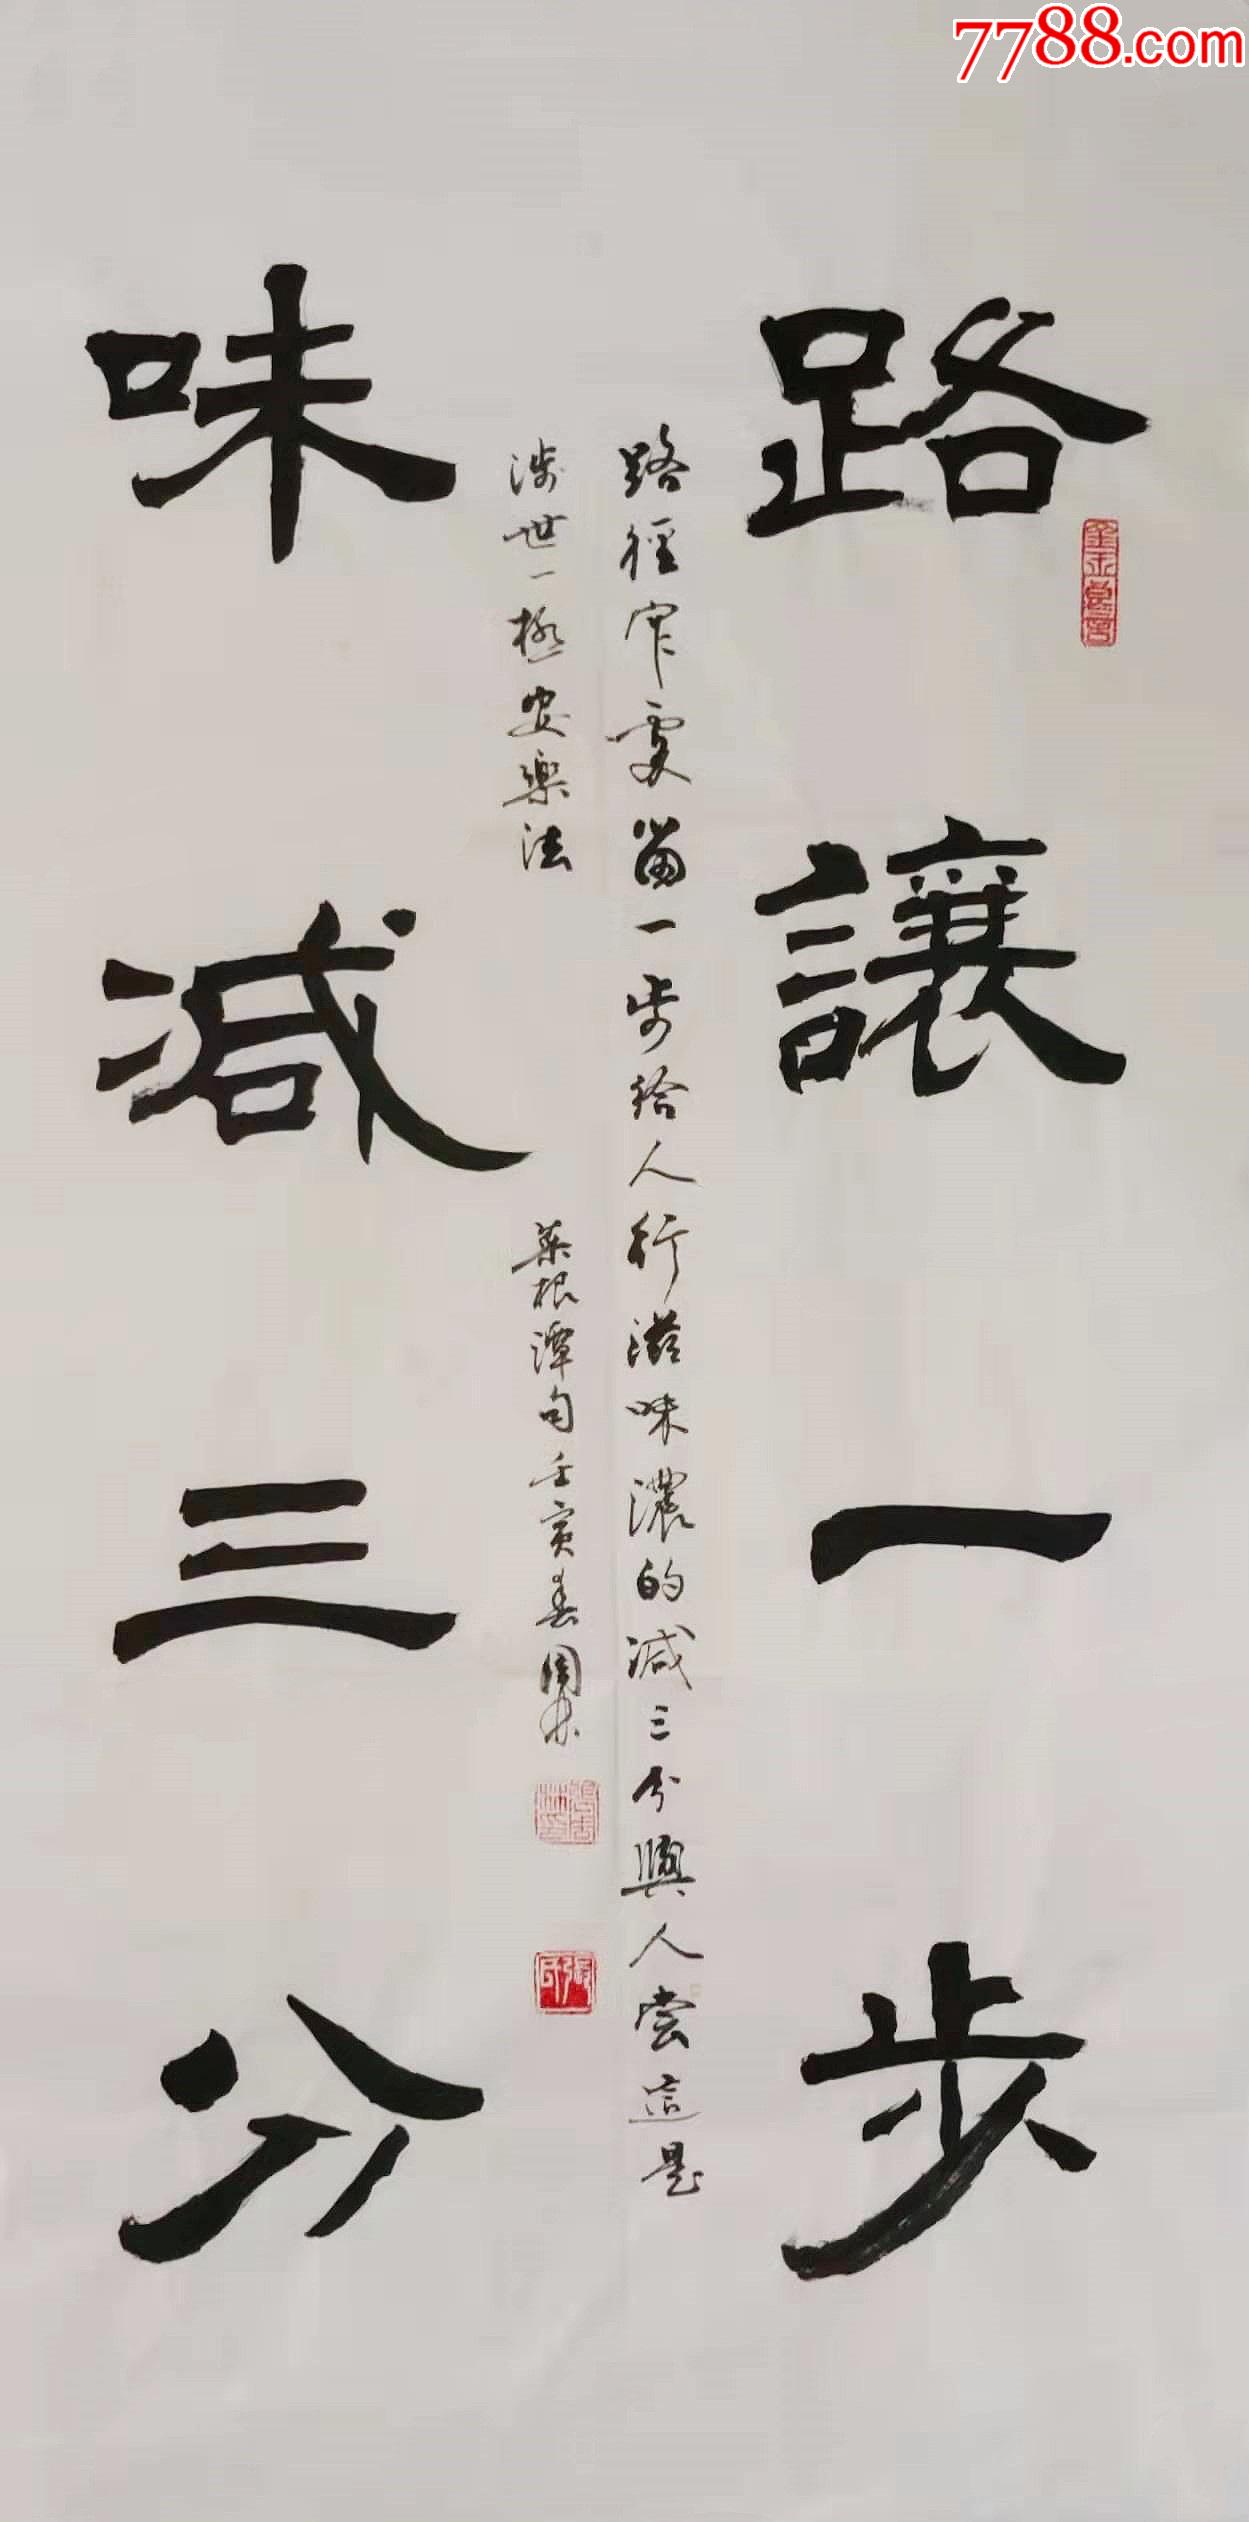 7788.com
路讓一步
味減三分
路徑窄處留一步給人行滋味濃的減三分與人嘗這是
涉世一極安樂法
菜根潭句壬寅春周林